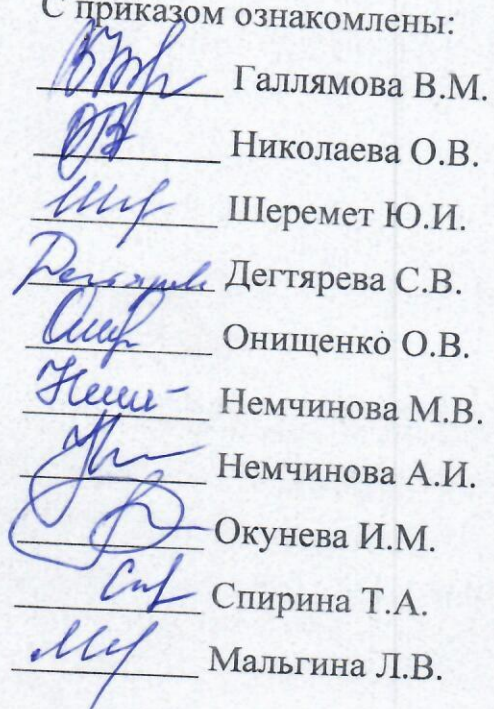 С приказом ознакомлены:
Галлямова В.М.
Николаева О.В.
Шеремет Ю.И.
Дегтярева С.В.
Онищенко О.В.
Немчинова М.В.
Немчинова А.И.
Окунева И.М.
Спирина Т.А.
Мальгина Л.В.